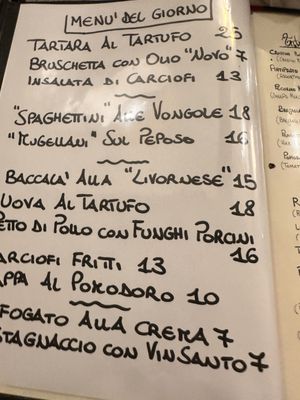 MENU' DEL GIORNO
TARTARA AL TARTUFO 23
BRUSCHETTA CON OLIO "NOVO" 7
INSALATA DI CARCIOFI 13
"SPAGHETTINI" ALLE VONGOLE 18
"MUGELLANI" SUL PEPOSO 16
BACCALA' ALLA "LIVORNESE" 15
UOVA AL TARTUFO 18
ETTO DI POLLO CON FUNGHI PORCINI
16
CARCIOFI FRITTI 13
APPA AL POMODORO 10
FOGATO ALLA CREMA 7
STAGNACCIO CON VINSANTO 7